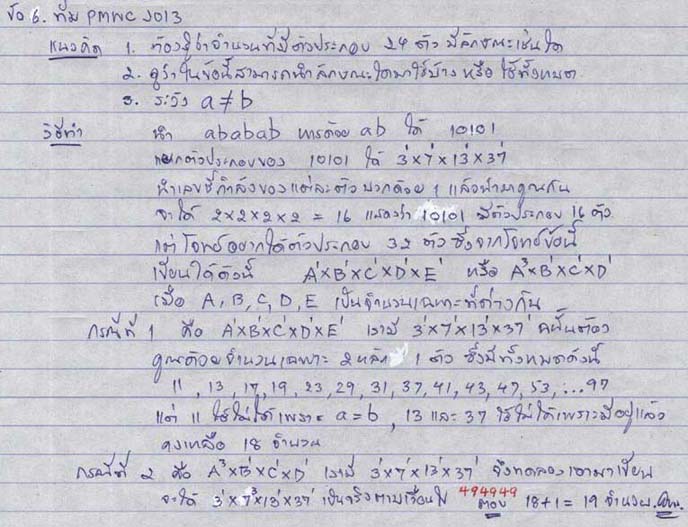 ข้อ 6. ทีม PMWC 2013
แนวคิด 1. ต้องรู้ว่าจำนวนที่มีตัวประกอบ 24 ตัว มีลักษณะเช่นใด
2. ดูว่าในข้อนี้สามารถนำลักษณะใดมาใช้บ้าง หรือ ใช้ทั้งหมด
3. ระวัง a≠b
วิธีทำ นำ ababab หารด้วย ab ได้ 10101
แยกตัวประกอบของ 10101 ได้ 3¹×7¹×13¹×37¹
นำเลขชี้กำลังของแต่ละตัว บวกด้วย 1 แล้วนำมาคูณกัน
จะได้ 2×2×2×2 = 16 แสดงว่า 10101 มีตัวประกอบ 16 ตัว
แต่โจทย์อยากได้ตัวประกอบ 32 ตัว ซึ่งจากโจทย์ข้อนี้
เขียนได้ดังนี้ A¹×B¹×C¹×D¹×E¹ หรือ A³×B¹×C¹×D¹
เมื่อ A, B, C, D, E เป็นจำนวนเฉพาะที่ต่างกัน
กรณีที่ 1 คือ A¹×B¹×C¹×D¹×E¹ เรามี 3¹×7¹×13¹×37¹ ฉะนั้นต้อง
คูณด้วยจำนวนเฉพาะ 2 หลัก 1 ตัว ซึ่งมีทั้งหมดดังนี้
11, 13, 17, 19, 23, 29, 31, 37, 41, 43, 47, 53, ...97
แต่ 11 ใช้ไม่ได้เพราะ a=b, 13 และ 37 ใช้ไม่ได้เพราะมีอยู่แล้ว
คงเหลือ 18 จำนวน
กรณีที่ 2 คือ A³×B¹×C¹×D¹ เรามี 3¹×7¹×13¹×37¹ จึงทดลองเอามาเขียน
494949
จะได้ 3¹×7³×13¹×37¹ เป็นจริงตามเงื่อนไข ตอบ 18+1 = 19 จำนวน